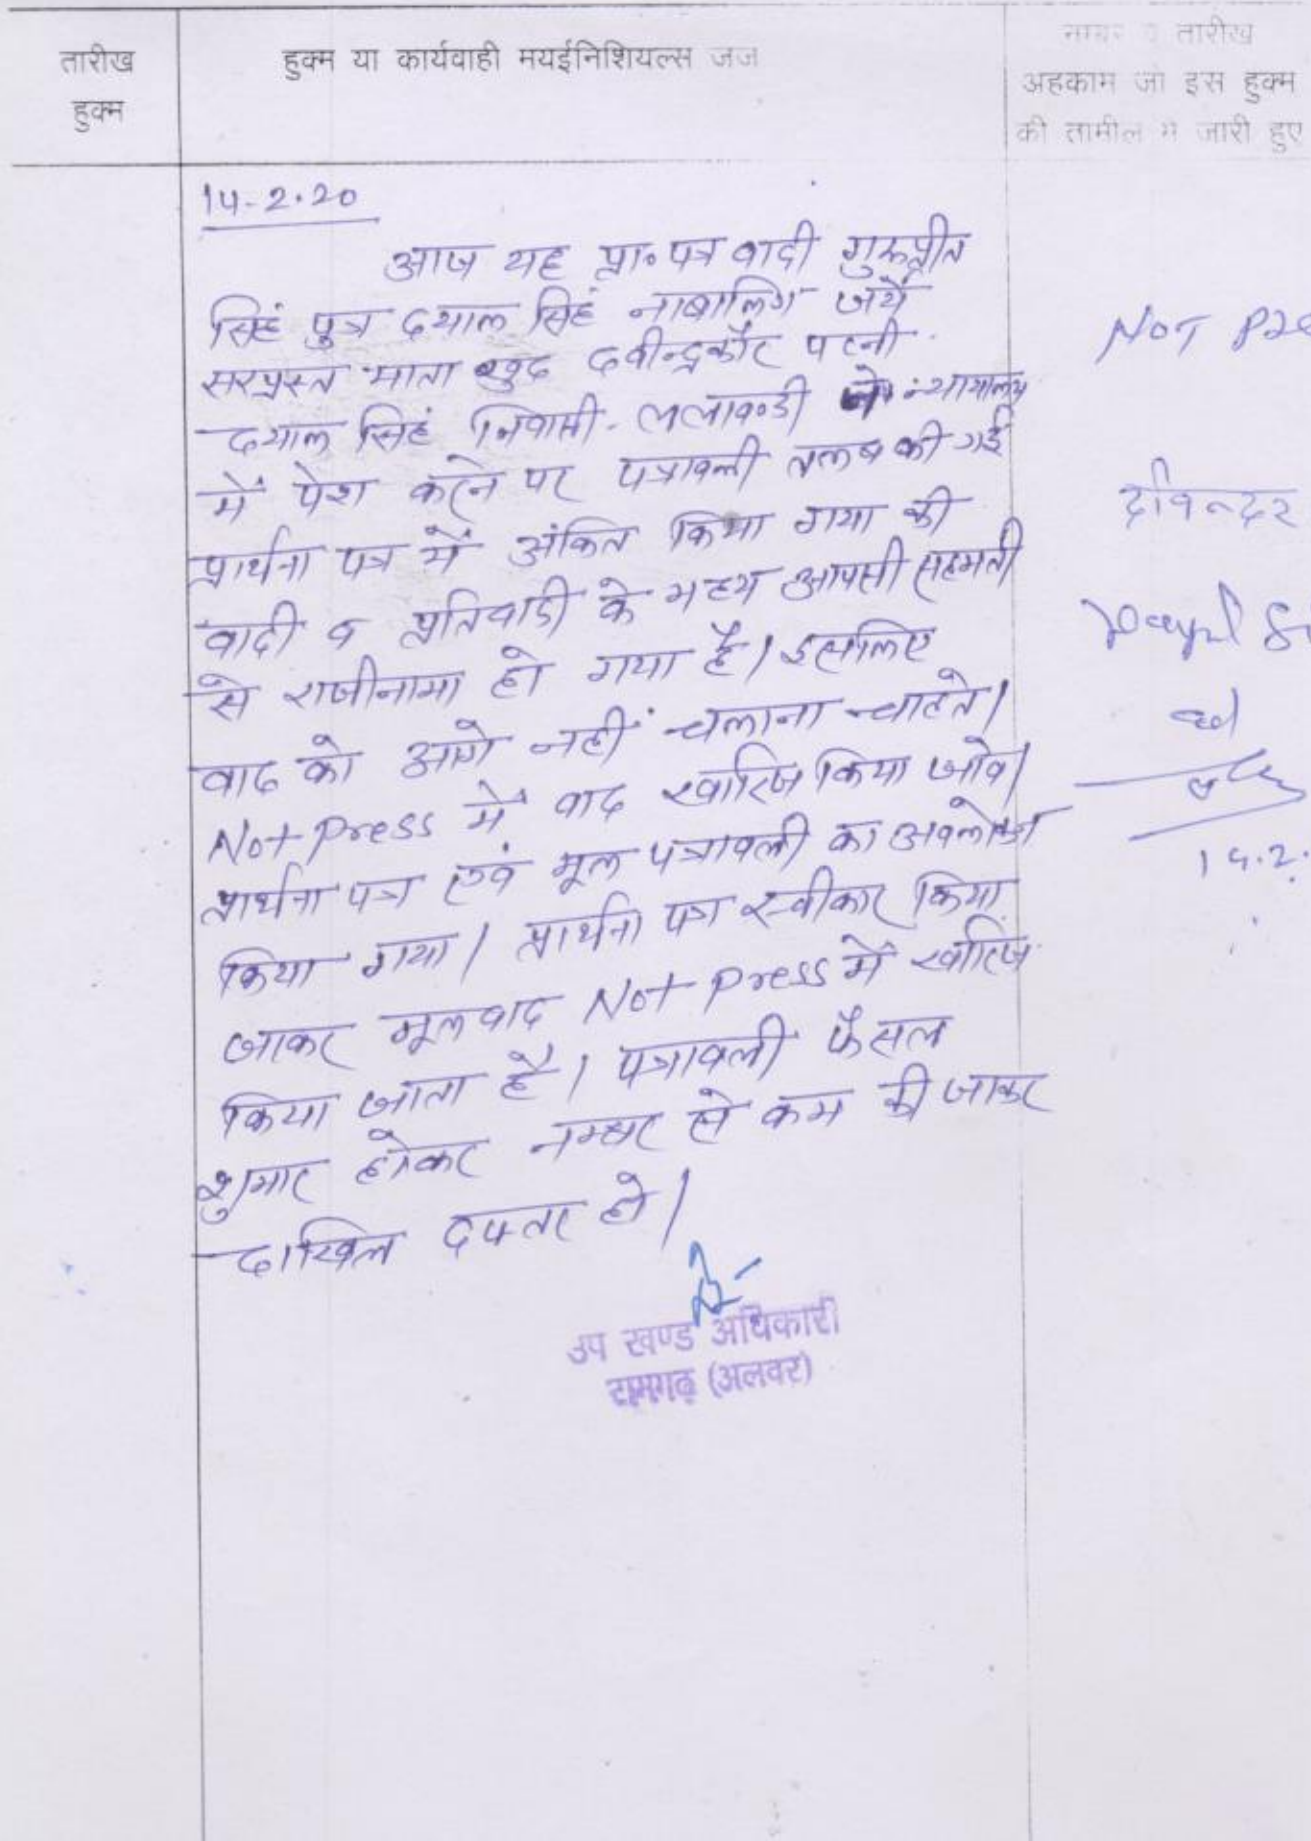 तारीख
हुक्म
हुक्म या कार्यवाही मयईनिशियल्स जज
नम्बर व तारीख
अहकाम जो इस हुक्म
की तामील में जारी हुए
14-2-20
आज यह प्रा॰ पत्र वादी गुरुप्रीत
सिहं पुत्र दयाल सिहं नाबालिग जर्ये
सरप्रस्त माता खुद दवीन्द्रकौर पत्नी
दयाल सिहं निवासी. ललावण्डी ने न्यायालय
में पेश करने पर पत्रावली तलब की गई
प्रार्थना पत्र में अंकित किया गया की
वादी व प्रतिवादी के मध्य आपसी सहमती
से राजीनामा हो गया है। इसलिए
वाद को आगे नहीं चलाना चाहते।
Not Press में वाद खारिज किया जावे।
प्रार्थना पत्र एवं मूल पत्रावली का अवलोकन
किया गया। प्रार्थना पत्र स्वीकार किया
जाकर मूलवाद Not Press में खारिज
किया जाता है। पत्रावली फैसल
शुमार होकर नम्बर से कम की जाकर
दाखिल दफ्तर हो।
उप खण्ड अधिकारी
रामगढ़ (अलवर)
NOT Pre
दविन्दर
14.2.